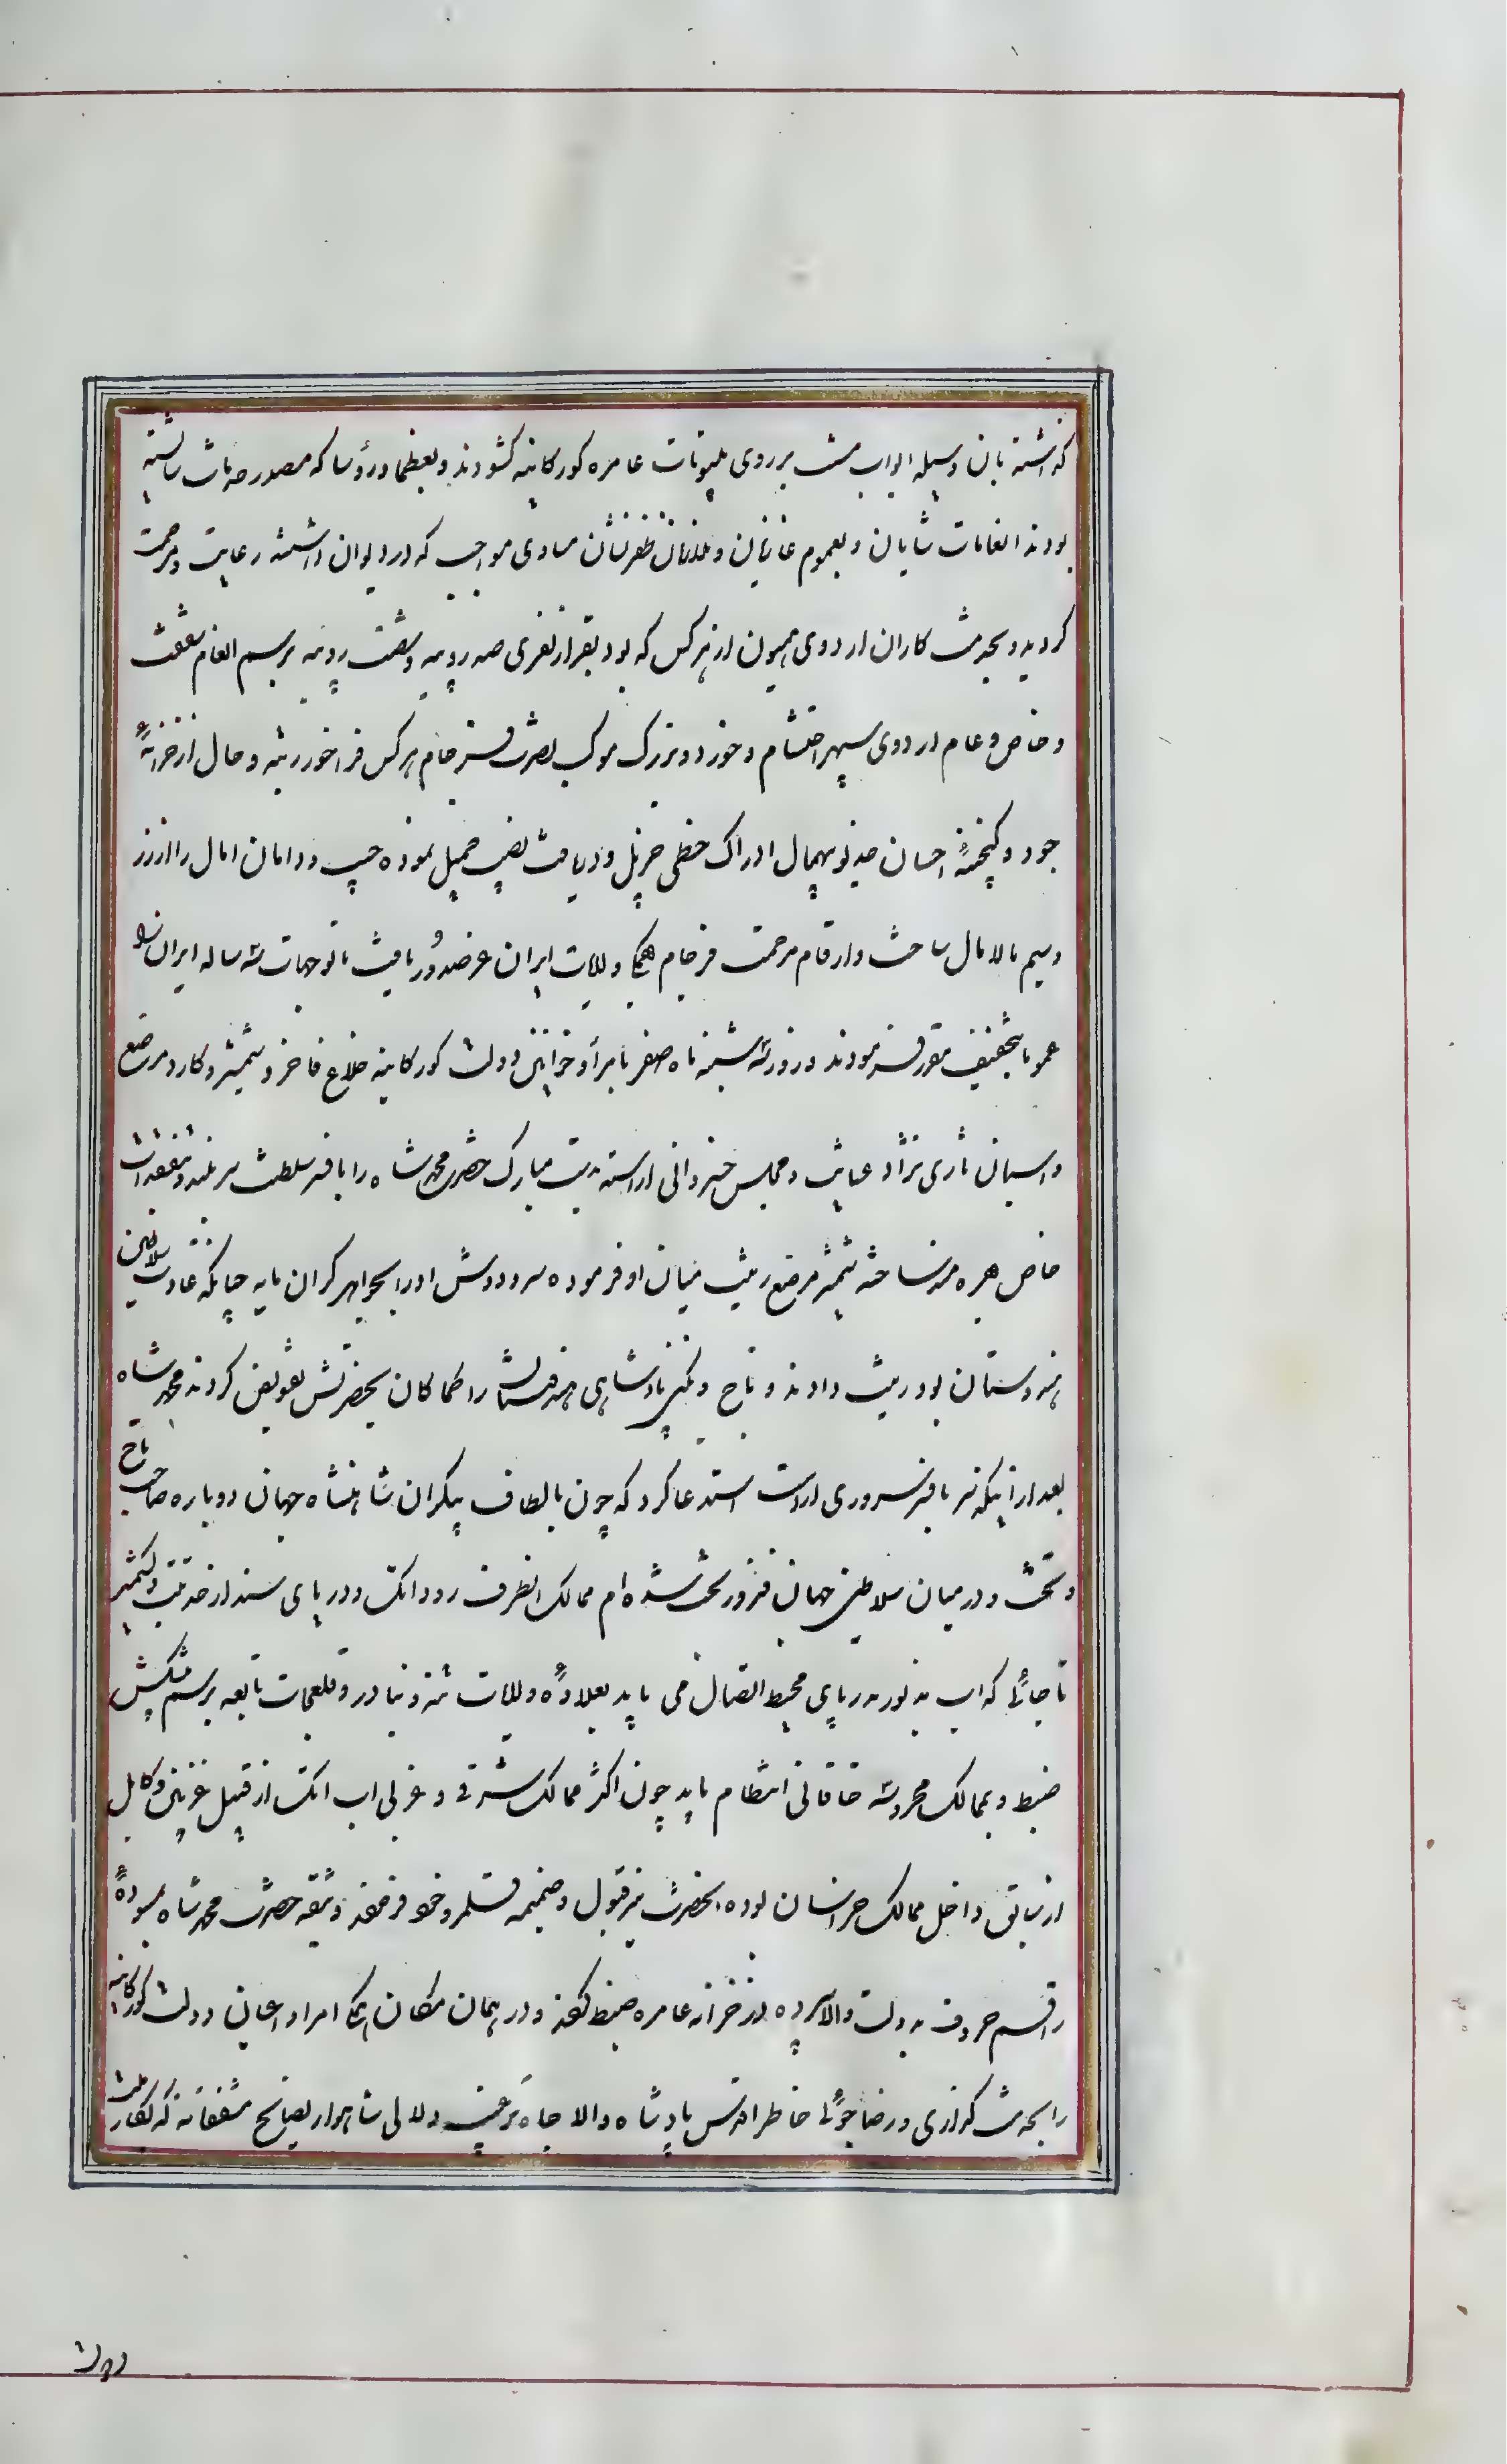 گذاشته بان وسیله ابواب منت بر روی بیوتات عامره کورکانیه گشودند و بعظما و رؤسا که مصدر خدمات شایسته
بودند انعامات شایان و بعموم غازیان و ملازمان ظفرنشان مساوی مواجب که در دیوان داشتند رعایت و مرحمت
گردید و بخدمت کاران اردوی همیون از هرکس که بود بقرار نفری صد روپیه و شصت روپیه برسم انعام شفقت
و خاص و عام اردوی سپهر احتشام و خورد و بزرگ موکب نصرت فرجام هرکس فراخور رتبه و حال از خزانهٔ
جود و گنجینهٔ احسان خدیو بیهمال ادراک حظی جزیل و دریافت نصیب جمیل نموده جیب و دامان امال را از زر
و سیم مالامال ساخت و ارقام مرحمت فرجام همگی ولایات ایران عرضدور یافت مالوجهات سه ساله ایران را
عموما بتخفیف مقرر فرمودند و روز سه شنبه ماه صفر بامراء و خوانین دولت کورکانیه خلاع فاخر و شمشیر و کارد مرصع
و اسبان تازی نژاد عنایت و مجلس خسروانی اراسته بدست مبارک حضرت محمد شاه را بافسر سلطنت سربلند و بتفقدات
خاص بهره مند ساخته شمشیر مرصع زینت میان او فرموده سر و دوش او را بجواهر گران مایه چنانکه عادت سلاطین
هندوستان بود زینت دادند و تاج و نگین پادشاهی هندوستان را کماکان بحضرتش تفویض کردند محمد شاه
بعد از اینکه سر بافسر سروری اراست استدعا کرد که چون بالطاف بیکران شاهنشاه جهان دوباره صاحب تاج
و تخت و در میان سلاطین جهان فیروز بخت شده ام ممالک انطرف رود اتک و دریای سند از حد تبت و کشمیر
تا جائی که اب مذبور بدریای محیط اتصال می یابد بعلاوهٔ ولایات تته و بنادر و قلعجات تابعه برسم پیشکش
ضبط و بممالک محروسه خاقانی انتظام یابد چون اکثر ممالک شرقی و غربی اب اتک از قبیل غزنین و کابل
از سابق داخل ممالک خراسان بوده انحضرت نیز قبول و ضمیمه قلمرو خود فرمودند وثیقه حضرت محمد شاه بمسودهٔ
راقم حروف بدولت والا سپرده در خزانه عامره ضبط کردند و در همان مکان همگی امرا و اعیان دولت کورکانیه
را بخدمت گزاری و رضاجوئی خاطر اقدس پادشاه والا جاه ترغیب و لالی شاهوار نصایح مشفقانه که بکار ملت
دولت